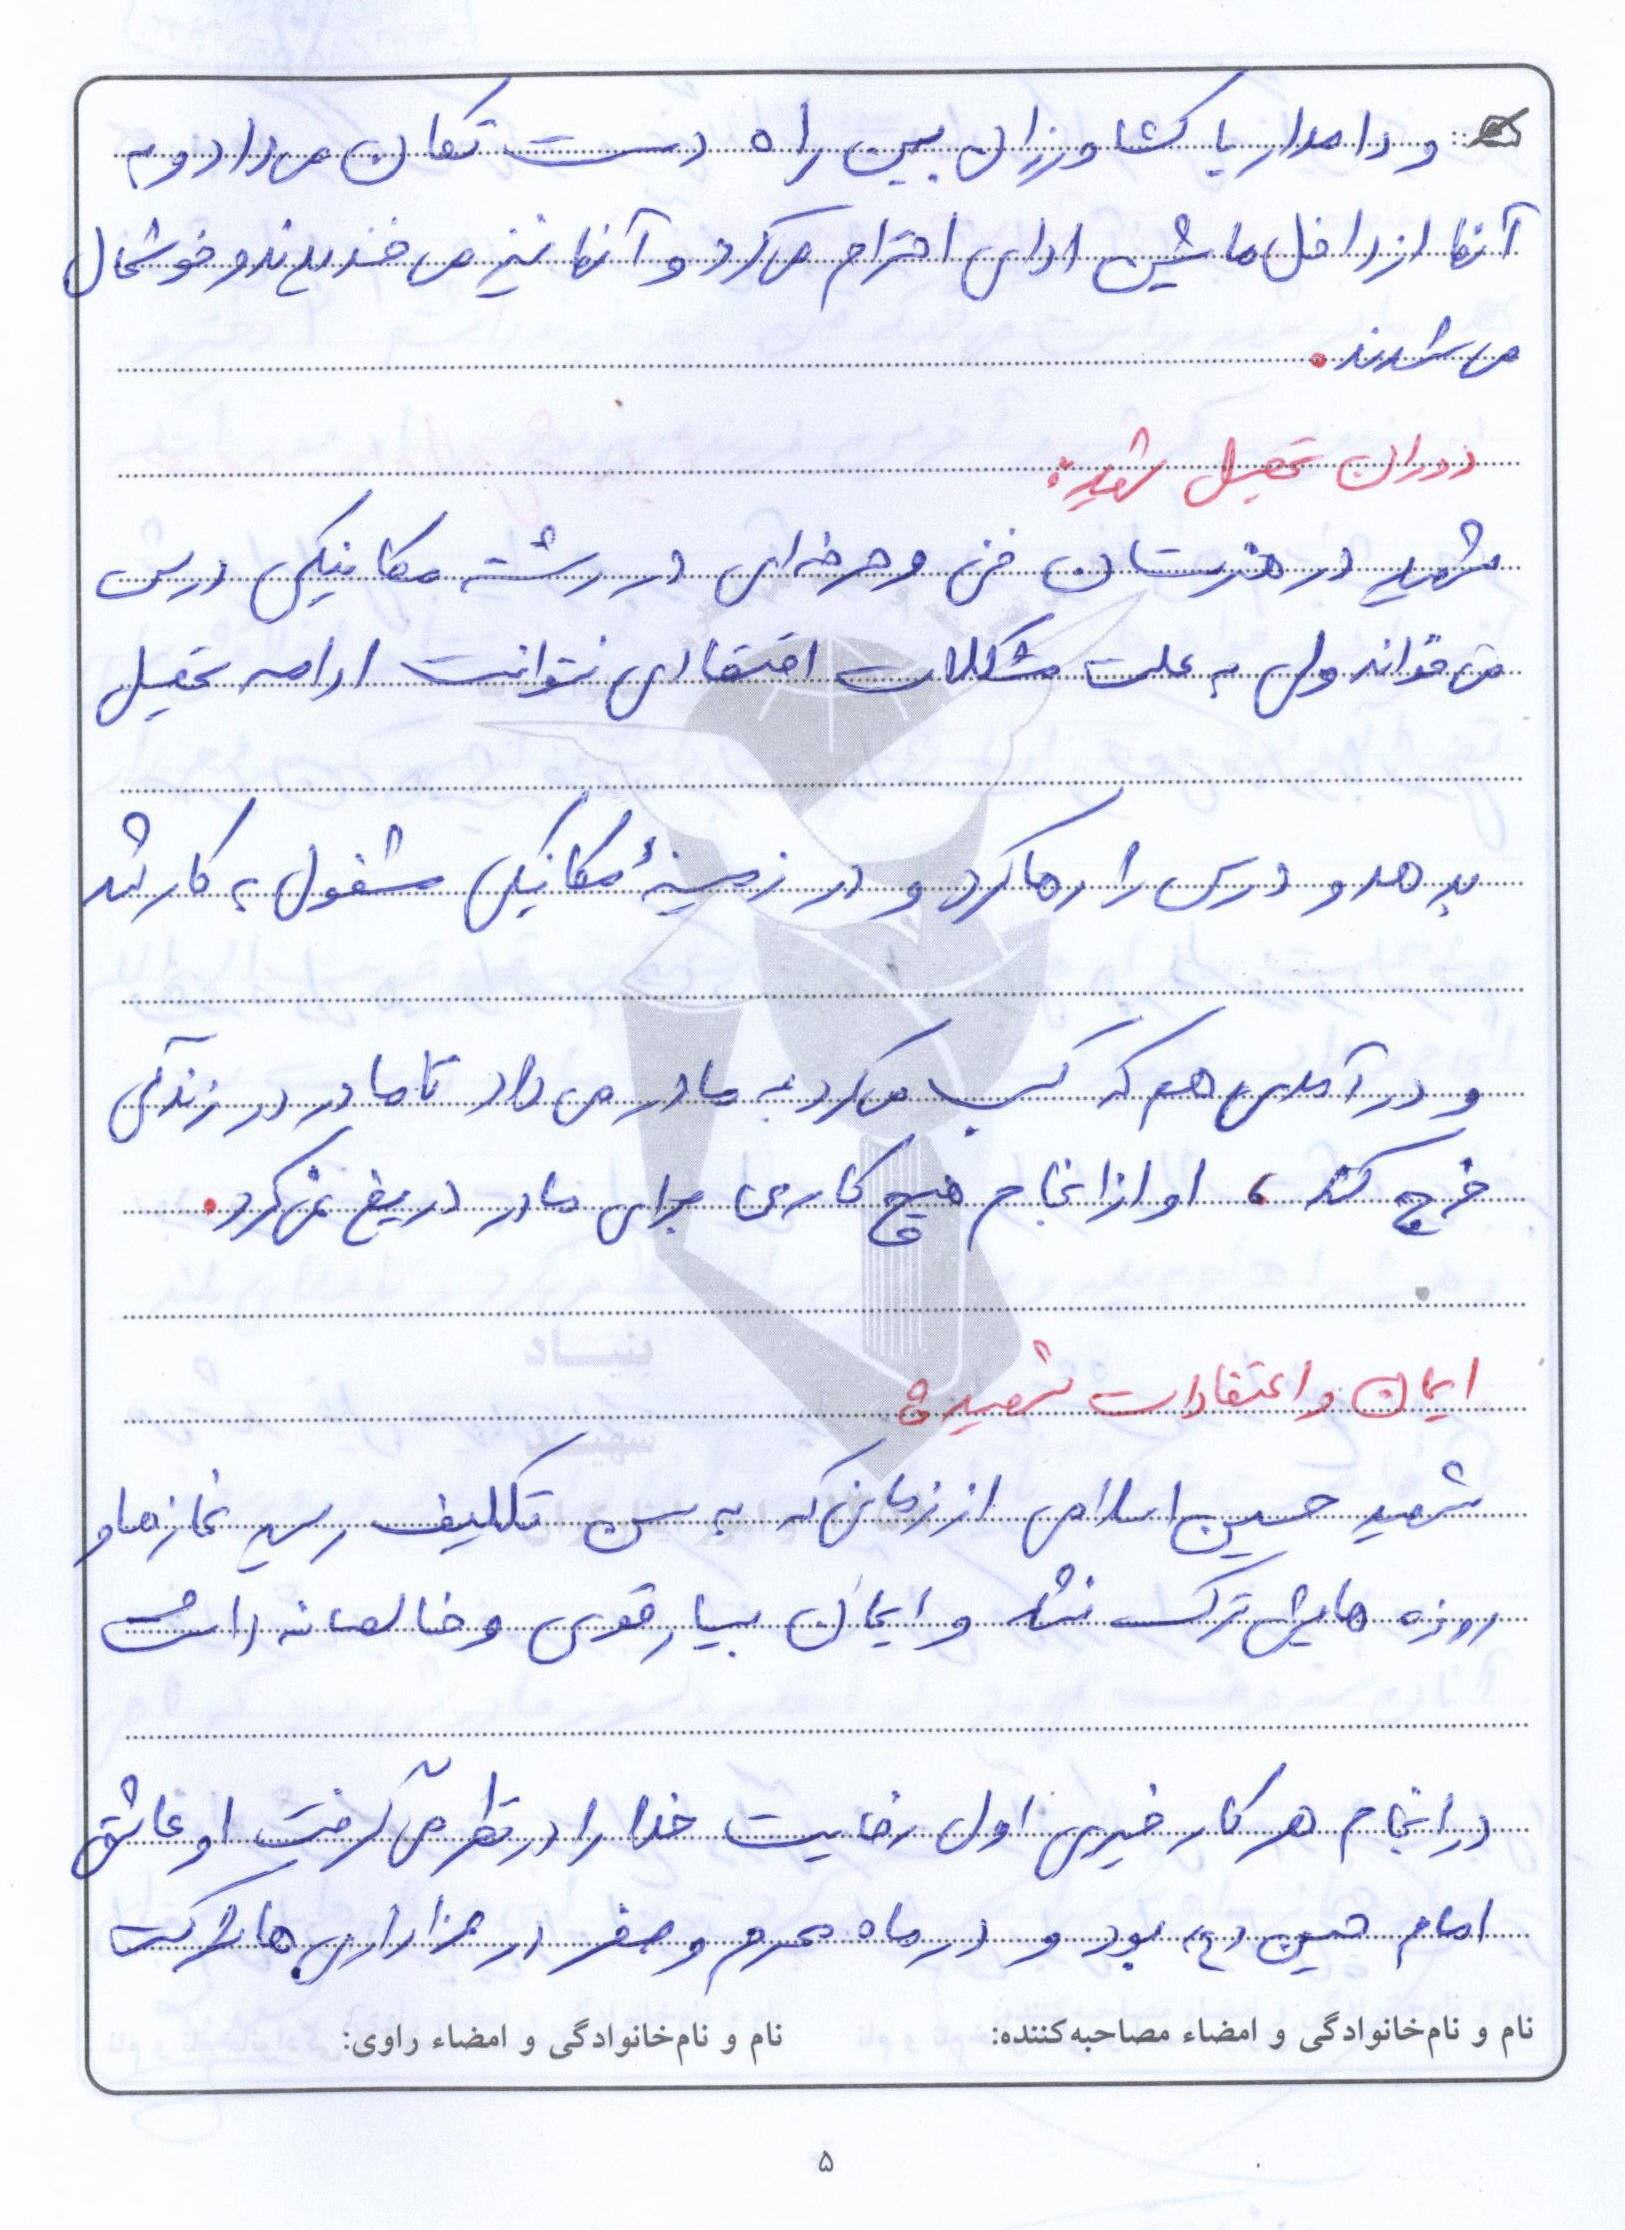 و دامدار یا کشاورزان بین راه دست تکان می‌داد و به
آنها از داخل ماشین ادای احترام می‌کرد و آنها نیز می خندیدند و خوشحال
می شدند.
دوران تحصیل شهید:
شهید در هنرستان فنی و حرفه‌ای در رشته مکانیکی درس
می خواند ولی به علت مشکلات اقتصادی نتوانست ادامه تحصیل
بدهد و درس را رها کرد و در زمینهٔ مکانیکی مشغول به کار شد
و درآمدی هم که کسب می‌کرد به مادر می داد تا مادر در زندگی
خرج کند، او از انجام هیچ کاری برای مادر دریغ نمی‌کرد.
ایمان و اعتقادات شهید:
شهید حسین اسلامی از زمانی که به سن تکلیف رسید نمازها و
روزه هایش ترک نشد و ایمان بسیار قوی و خالصانه داشت
در انجام هر کار خیری اول رضایت خدا را در نظر می گرفت او عاشق
امام حسین (ع) بود و در ماه محرم و صفر در عزاداری ها شرکت
نام و نام‌خانوادگی و امضاء مصاحبه‌کننده: نام و نام‌خانوادگی و امضاء راوی:
۵